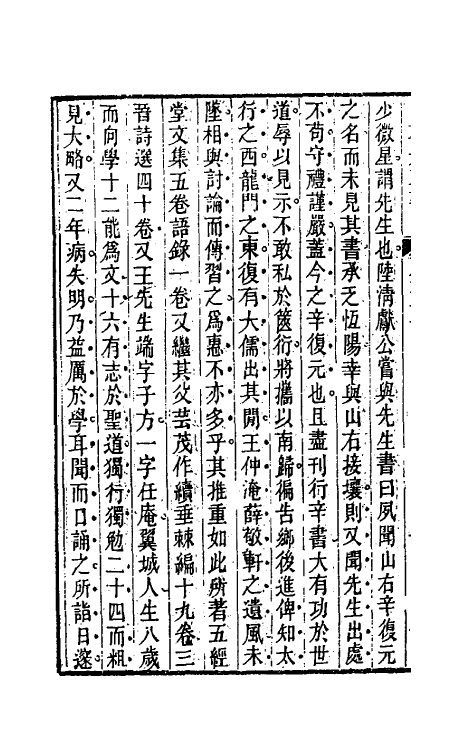 少微星謂先生也陸清獻公嘗與先生書曰夙聞山右辛復元
之名而未見其書承乏恆陽幸與山右接壤則又聞先生出處
不苟守禮謹嚴蓋今之辛復元也且盡刊行辛書大有功於世
道辱以見示不敢私於篋衍將攜以南歸徧告鄉後進俾知太
行之西龍門之東復有大儒出其閒王仲淹薛敬軒之遺風未
墜相與討論而傳習之為惠不亦多乎其推重如此所著五經
堂文集五卷語錄一卷又繼其父芸茂作續垂棘編十九卷三
晉詩選四十卷又王先生端字子方一字任庵翼城人生八歲
而向學十二能為文十六有志於聖道獨行獨勉二十四而粗
見大略又二年病失明乃益厲於學耳聞而口誦之所詣日邃